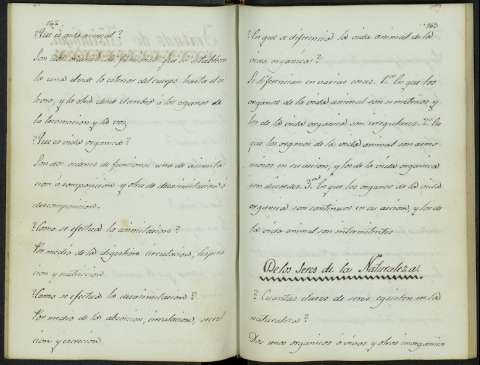 142
¿Que es vida animal?
Son dos ordenes de funciones que se establecen
la una desde la esterior del cuerpo hasta el ce
lebro, y la otra desde el celebro a los organos de
la locomocion y la voz.
¿Que es vida organica?
Son dos ordenes de funciones una de asimila
cion o composicion y otra de desasimilacion o
descomposicion.
¿Como se efectua la asimilacion?
Por medio de la digestion, circulacion, respira
cion y nutricion.
¿Como se efectua la desasimilacion?
Por medio de la absorcion, circulacion, secre
cion y escrecion.
143
¿En que se diferencia la vida animal de la
vida organica?
Se diferencian en varias cosas. 1.ª En que los
organos de la vida animal son simetricos y
los de la vida organica son irregulares. 2.ª En
que los organos de la vida animal son armo
nicos en su accion, y los de la vida organica
son discordes. 3.ª En que los organos de la vida
organica son continuos en su accion, y los de
la vida animal son intermitentes
De los Seres de la Naturaleza.
¿Cuantas clases de seres existen en la
naturaleza?
Dos unos organicos o vivos y otros inorganico